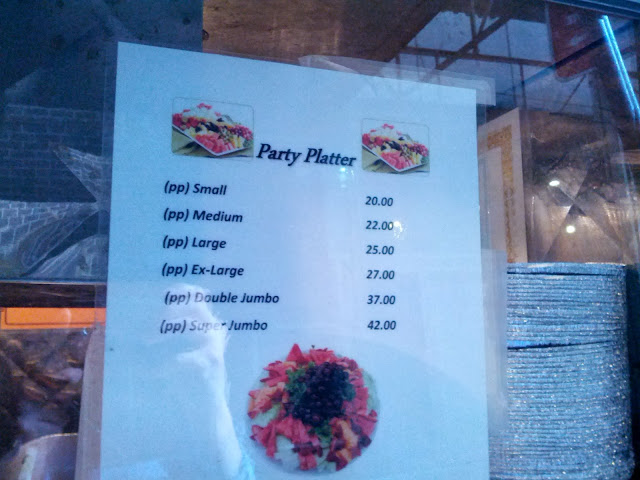 Party Platter
(pp) Small 20.00
(pp) Medium 22.00
(pp) Large 25.00
(pp) Ex-Large 27.00
(pp) Double Jumbo 37.00
(pp) Super Jumbo 42.00